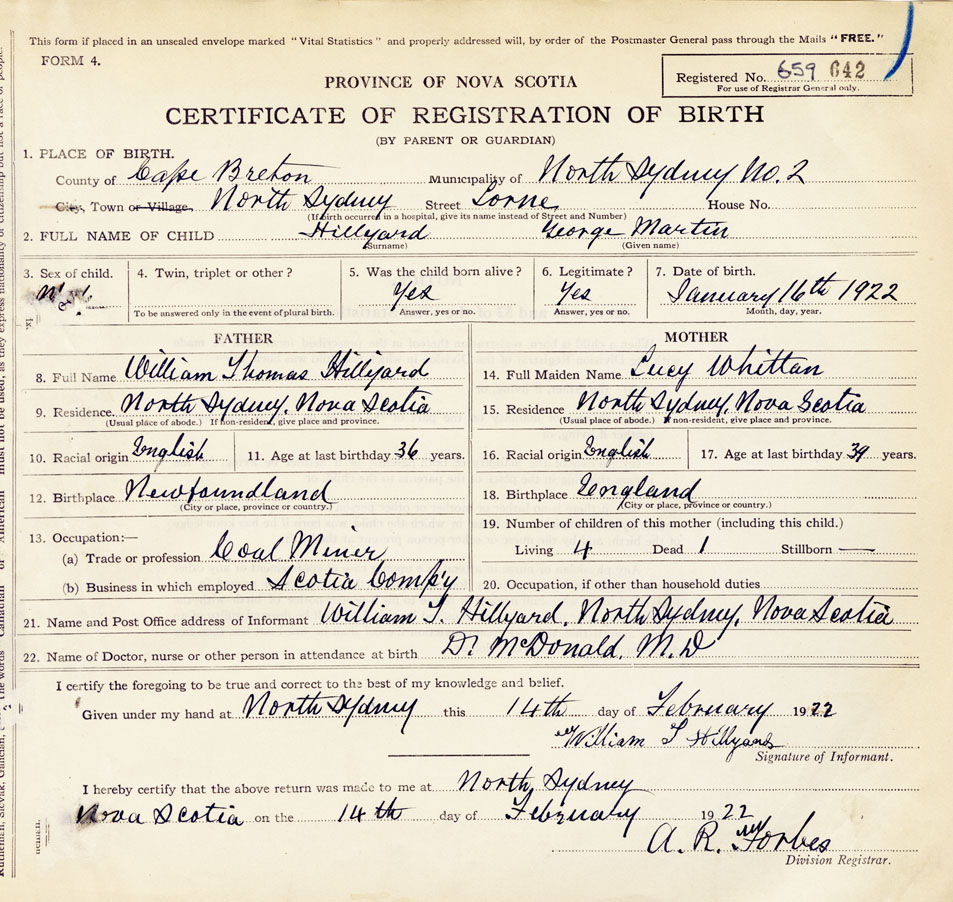 This form if placed in an unsealed envelope marked "Vital Statistics" and properly addressed will, by order of the Postmaster General pass through the Mails "FREE."
FORM 4.
Registered No. 659 642
For use of Registrar General only.
PROVINCE OF NOVA SCOTIA
CERTIFICATE OF REGISTRATION OF BIRTH
(BY PARENT OR GUARDIAN)
1. PLACE OF BIRTH.
County of Cape Breton Municipality of North Sydney No. 2
City, Town or Village, North Sydney Street Lorne House No.
(If birth occurred in a hospital, give its name instead of Street and Number)
2. FULL NAME OF CHILD Hillyard George Martin
(Surname) (Given name)
3. Sex of child. 4. Twin, triplet or other? 5. Was the child born alive? 6. Legitimate? 7. Date of birth.
Yes Yes January 16th 1922
To be answered only in the event of plural birth. Answer, yes or no. Answer, yes or no. Month, day, year.
FATHER MOTHER
8. Full Name William Thomas Hillyard 14. Full Maiden Name Lucy Whittan
9. Residence. North Sydney, Nova Scotia 15. Residence North Sydney, Nova Scotia
(Usual place of abode.) If non-resident, give place and province. (Usual place of abode.) If non-resident, give place and province.
10. Racial origin English 11. Age at last birthday 36 years. 16. Racial origin English 17. Age at last birthday 39 years.
12. Birthplace Newfoundland 18. Birthplace England
(City or place, province or country.) (City or place, province or country.)
13. Occupation:— 19. Number of children of this mother (including this child.)
(a) Trade or profession Coal Miner Living 4 Dead 1 Stillborn —
(b) Business in which employed Scotia Comp'y 20. Occupation, if other than household duties
21. Name and Post Office address of Informant William T. Hillyard, North Sydney, Nova Scotia
22. Name of Doctor, nurse or other person in attendance at birth Dr McDonald. M.D
I certify the foregoing to be true and correct to the best of my knowledge and belief.
Given under my hand at North Sydney this 14th day of February 1922
William T Hillyard
Signature of Informant.
I hereby certify that the above return was made to me at North Sydney
Nova Scotia on the 14th day of February 1922
A. R. Forbes
Division Registrar.